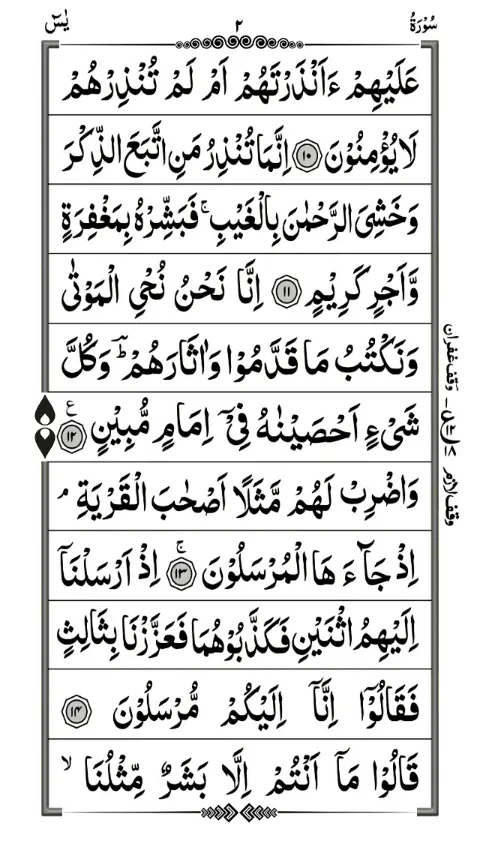 سُوْرَةُ ٢ يٰسٓ
عَلَيْهِمْ ءَاَنْذَرْتَهُمْ اَمْ لَمْ تُنْذِرْهُمْ
لَا يُؤْمِنُوْنَ ۝١٠ اِنَّمَا تُنْذِرُ مَنِ اتَّبَعَ الذِّكْرَ
وَخَشِيَ الرَّحْمٰنَ بِالْغَيْبِ ۚ فَبَشِّرْهُ بِمَغْفِرَةٍ
وَّاَجْرٍ كَرِيْمٍ ۝١١ اِنَّا نَحْنُ نُحْيِ الْمَوْتٰى
وَنَكْتُبُ مَا قَدَّمُوْا وَاٰثَارَهُمْ ؕ وَكُلَّ
شَيْءٍ اَحْصَيْنٰهُ فِيْٓ اِمَامٍ مُّبِيْنٍ ۝١٢ ع
وَاضْرِبْ لَهُمْ مَّثَلًا اَصْحٰبَ الْقَرْيَةِ ۘ
اِذْ جَآءَ هَا الْمُرْسَلُوْنَ ۝١٣ ۚ اِذْ اَرْسَلْنَآ
اِلَيْهِمُ اثْنَيْنِ فَكَذَّبُوْهُمَا فَعَزَّزْنَا بِثَالِثٍ
فَقَالُوْٓا اِنَّآ اِلَيْكُمْ مُّرْسَلُوْنَ ۝١٤
قَالُوْا مَآ اَنْتُمْ اِلَّا بَشَرٌ مِّثْلُنَا ۙ
وقف غفران
وقف لازم